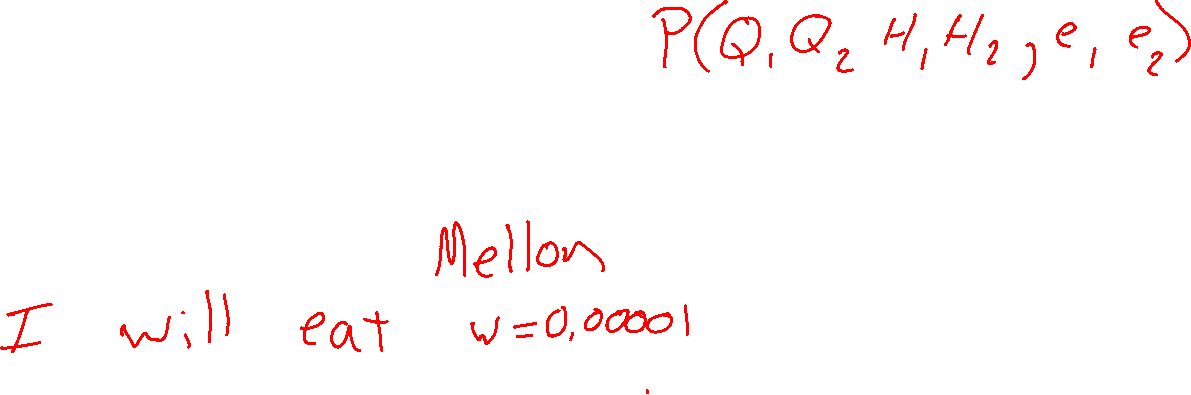 P(Q₁ Q₂ H₁ H₂, e₁ e₂)
Mellon
I will eat w=0.00001